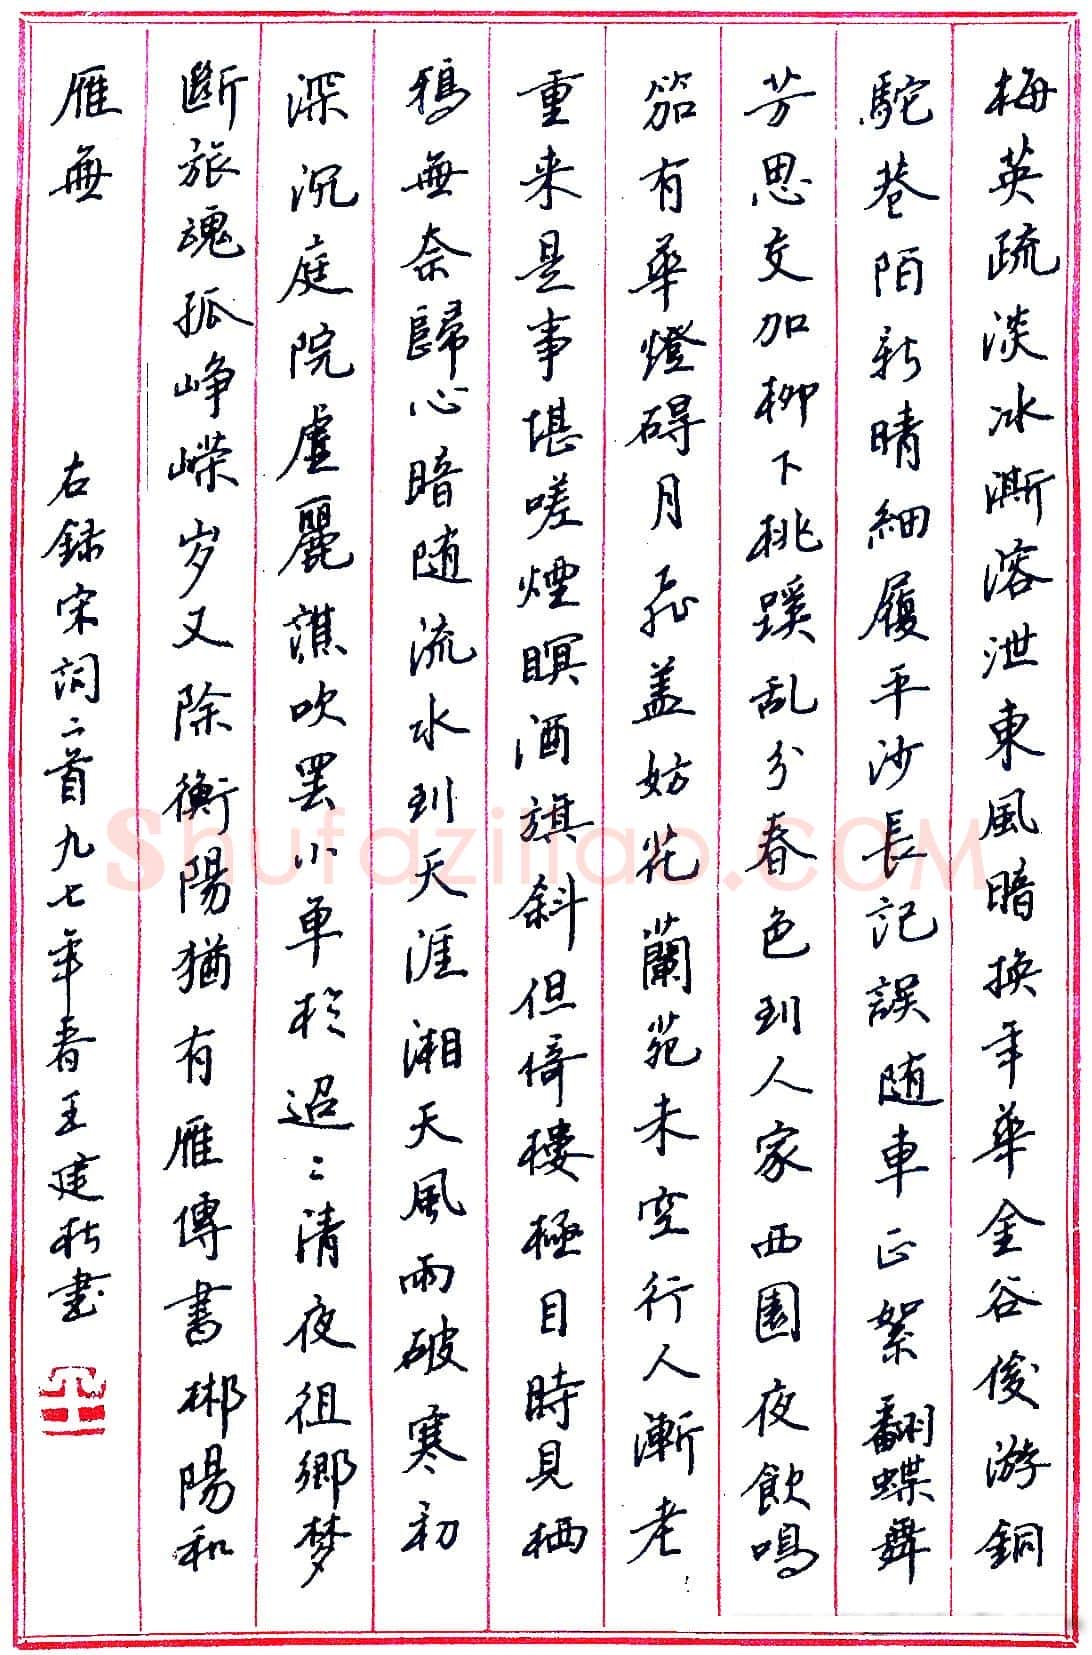 梅英疏淡冰澌溶泄東風暗换年華金谷俊游銅
駝巷陌新晴細履平沙長記誤随車正絮翻蝶舞
芳思交加柳下桃蹊乱分春色到人家西園夜飲鳴
笳有華燈碍月飛盖妨花蘭苑未空行人漸老
重来是事堪嗟煙暝酒旗斜但倚樓極目時見栖
鴉無奈歸心暗随流水到天涯湘天風雨破寒初
深沉庭院虚麗譙吹罢小单於迢〻清夜徂鄉梦
斷旅魂孤峥嵘岁又除衡陽猶有雁傳書郴陽和
雁無
右録宋詞二首九七年春王建書
shufaziliao.com